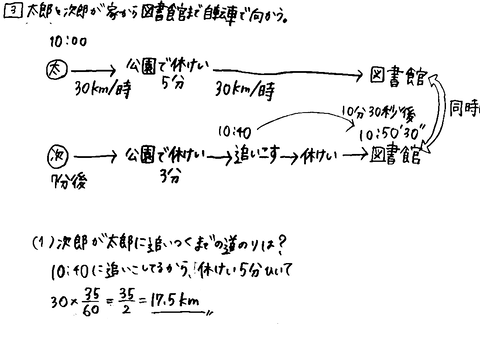 3 太郎と次郎が家から図書館まで自転車で向かう。
10:00
太 → 公園で休けい → 図書館
30km/時 5分 30km/時
同時
10分30秒後
10:40 10:50'30"
次 → 公園で休けい → 追いこす → 休けい → 図書館
7分後 3分
(1) 次郎が太郎に追いつくまでの道のりは?
10:40に追いこしてるから、休けい5分ひいて
30×35/60=35/2=17.5km